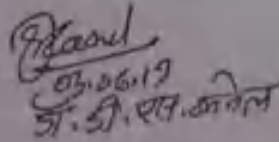 03.06.19
डॉ. डी. एस. कनेल